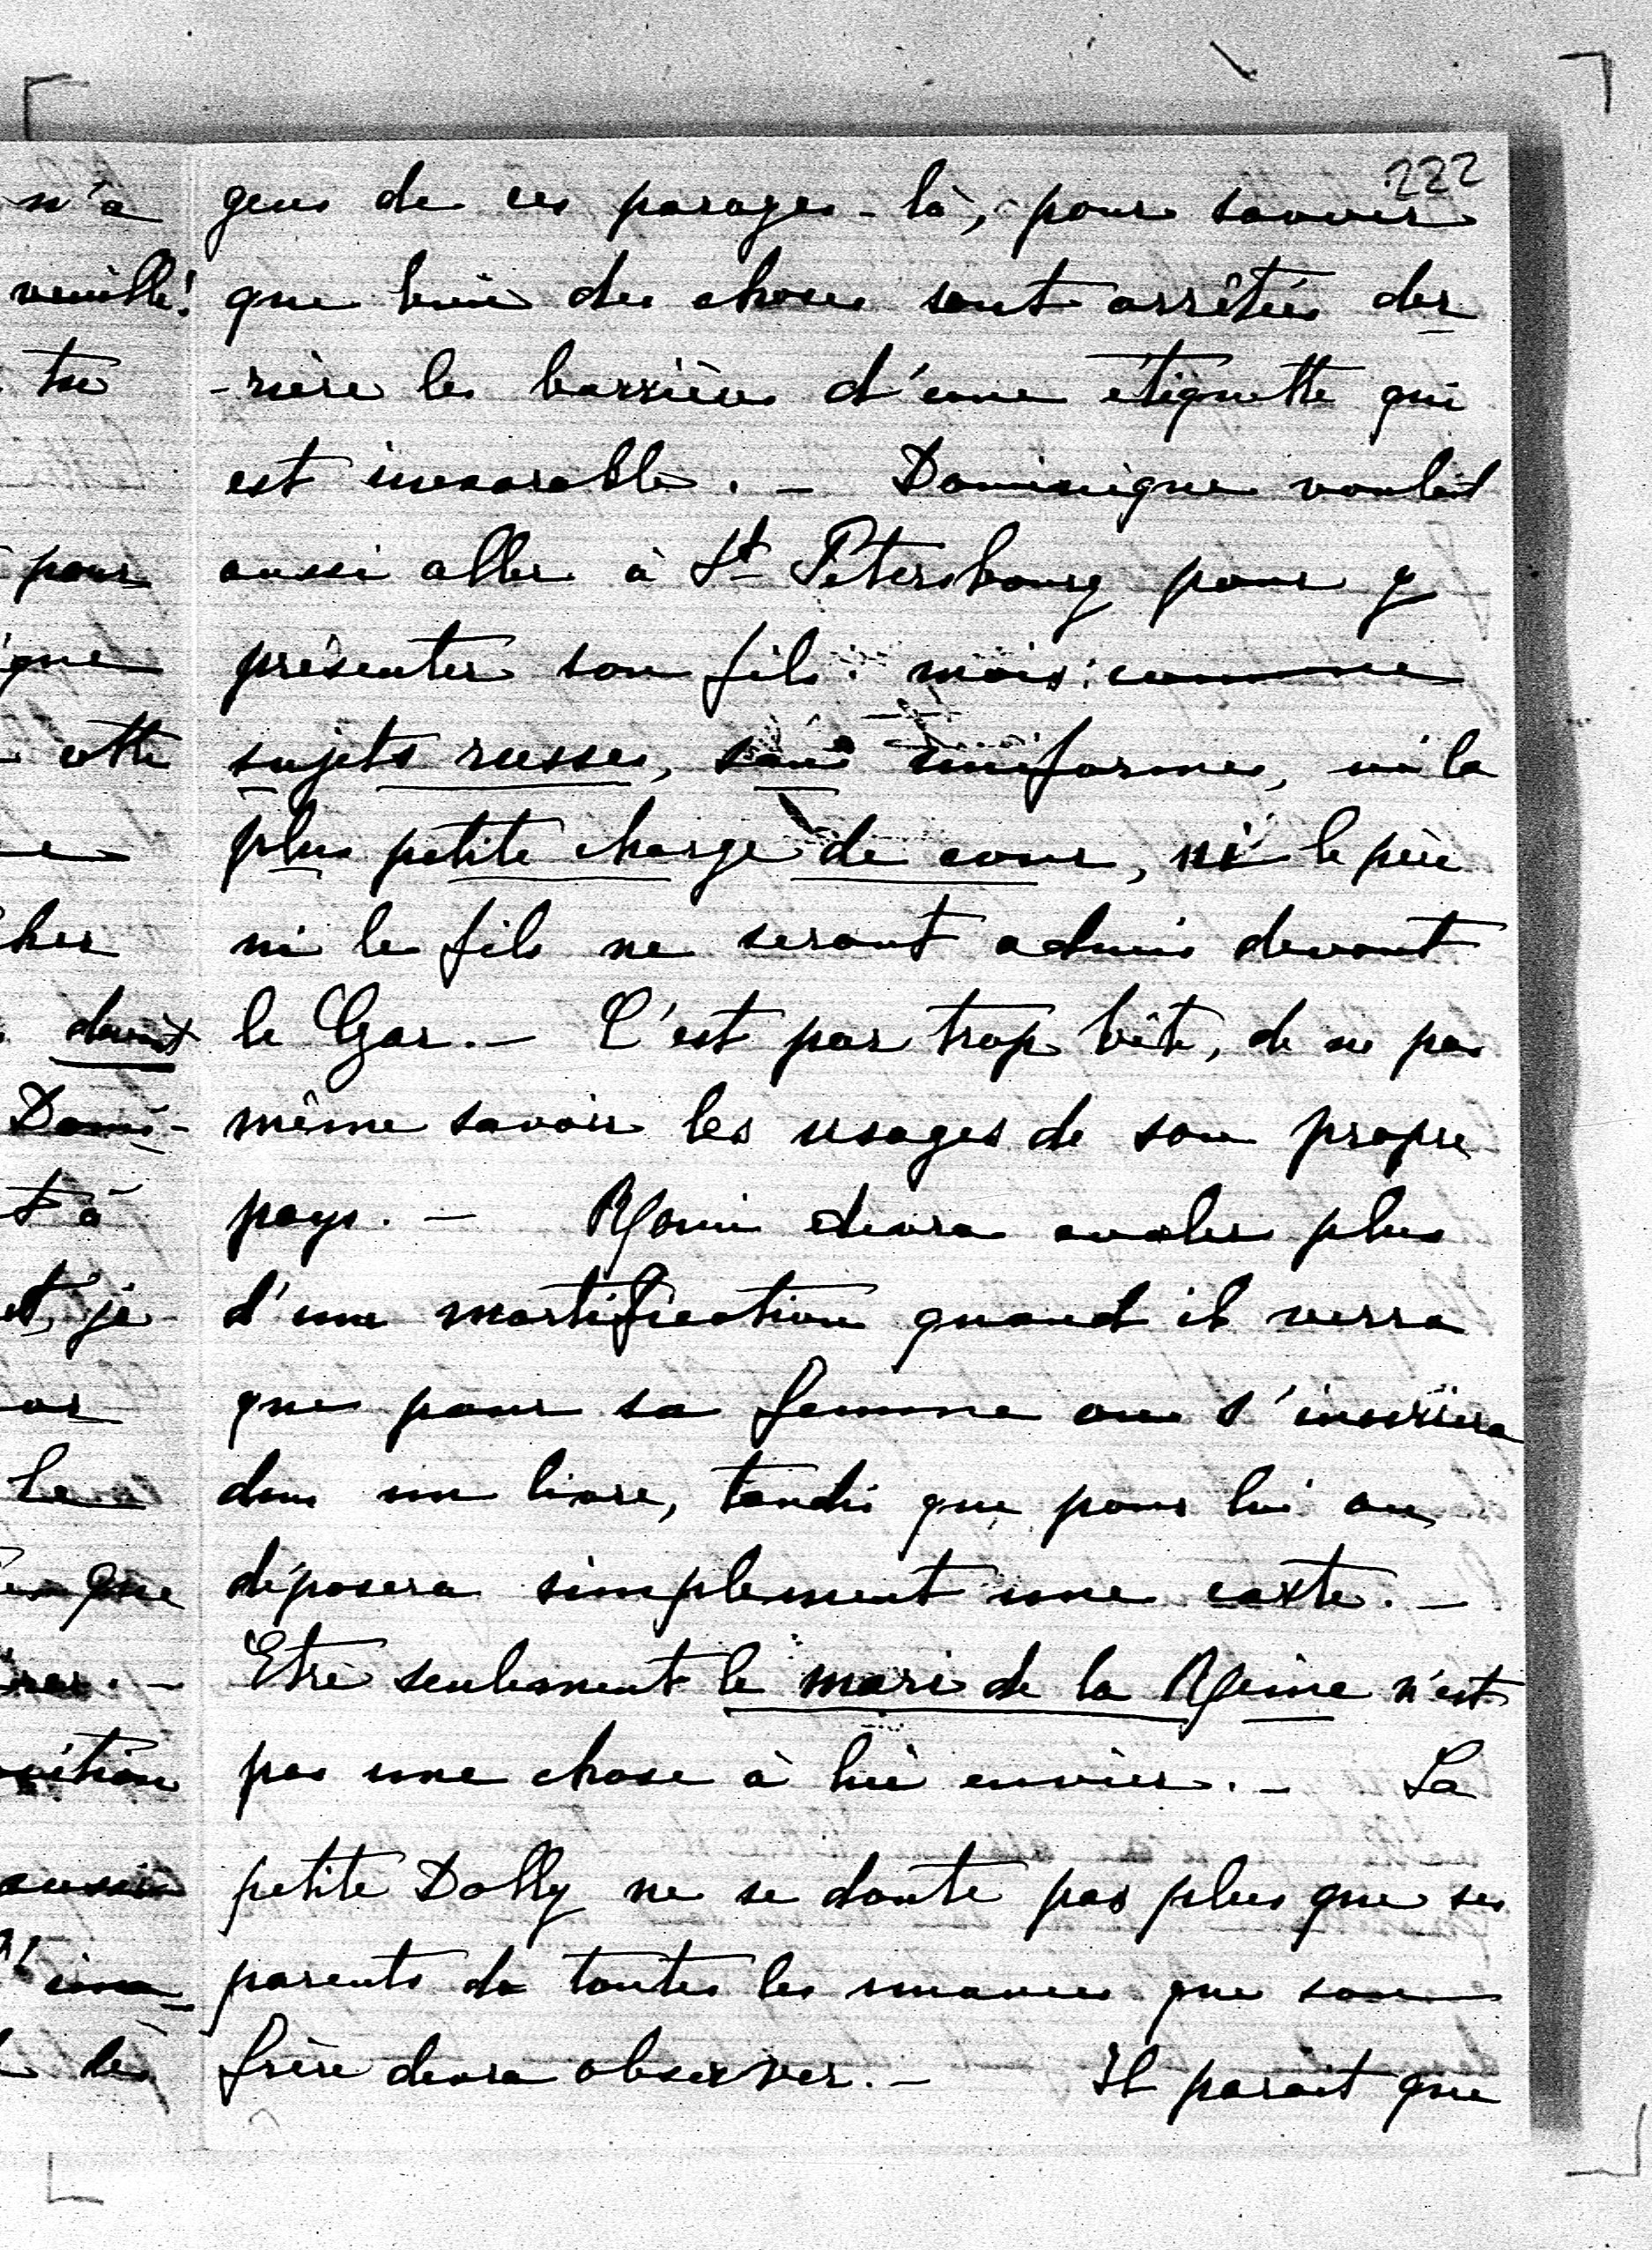 222
gens de ces parages-là, pour savoir
que bien des choses sont arrêtées der
-rière les barrières d'une étiquette qui
est inexorable. — Dominique voulait
aussi aller à St Pétersbourg pour y
présenter son fils: mais: comme
sujets russes, sans uniformes, ni la
plus petite charge de cour, ni le père
ni le fils ne seront admis devant
le Czar. — C'est par trop bête, de ne pas
même savoir les usages de son propre
pays. — devra avaler plus
d'une mortification quand il verra
que pour sa femme on s'inscrira
dans un livre, tandis que pour lui on
déposera simplement une carte. —
Etre seulement le mari de la Reine n'est
pas une chose à lui envier. — La
petite Dolly ne se doute pas plus que ses
parents de toutes les nuances que son
frère devra observer. — Il parait que
n'a
veuille!
tu
pour
que
cette
cher
devait
Domi-
t à
et, je
or
Le
que
aussi
des